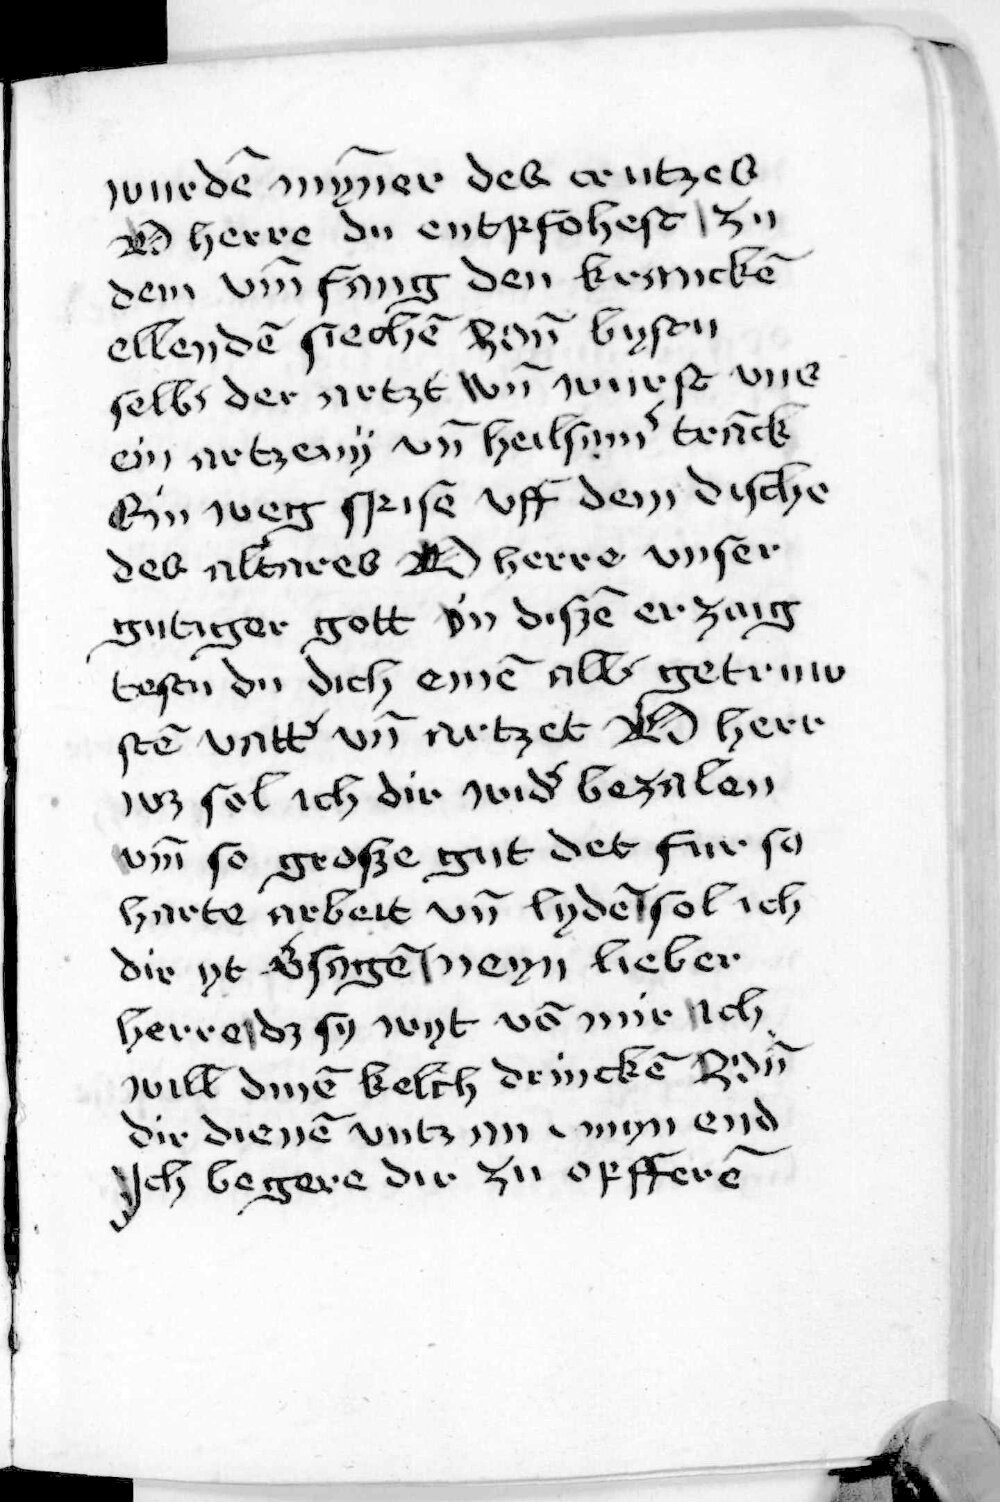 wurdē mȳner des crutzes
O herre du entpfohest / zu
dem vm̄ fang den kranckē
ellendē siechē Vn̄ bystu
selbs der artzt vn̄ wurst vns
ein artzeniÿ vn̄ heilsamer tranck
Ein weg spisē vff dem dische
des altares O herre vnser
gutiger gott Jn diszē erzaig
testu du dich einē alls getruw
stē vatter vn̄ artzet O herr
wz sol ich dir wider bezalen
vm̄ so grosze gut det fur so
harte arbeit vn̄ lydē / sol ich
dir yt versagē / neyn lieber
herre / dz sy wyt vō mir / Ich
will dinē kelch drinckē Vn̄
dir dienē vntz an myn end
Jch begere dir zu opfferē